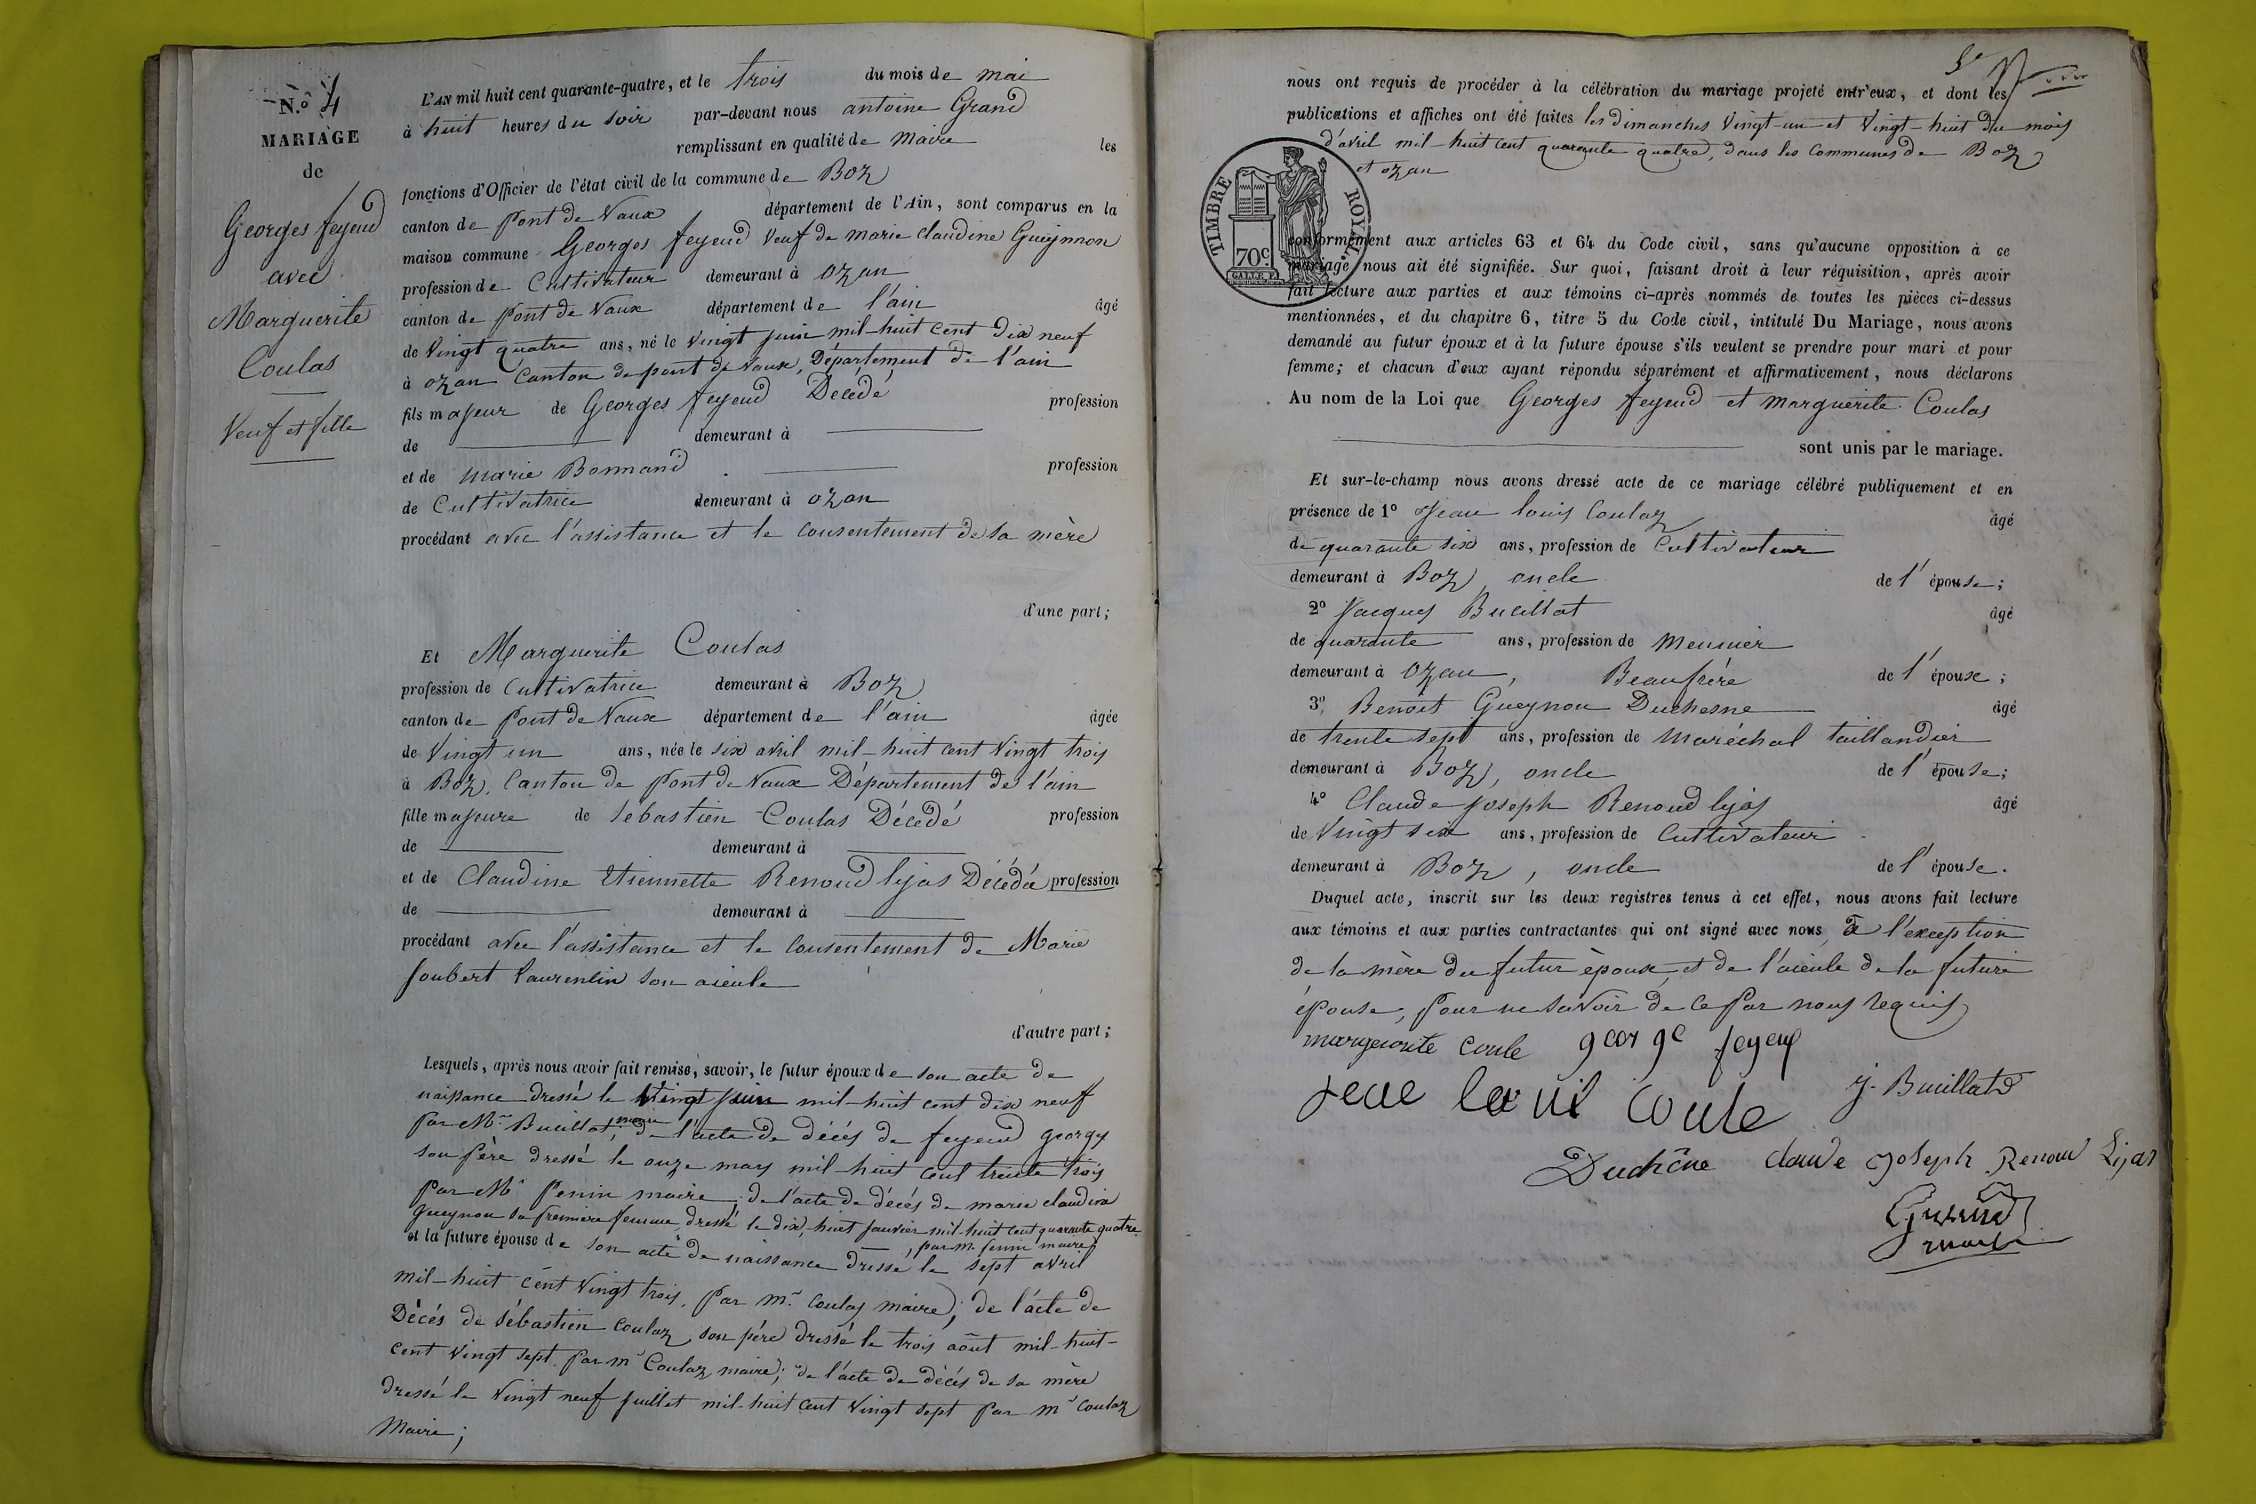 N.º 4
MARIAGE
de
Georges feyeud
avec
Marguerite
Coulas
Veuf et fille
L'AN mil huit cent quarante-quatre, et le trois du mois de mai
à huit heures du soir par-devant nous antoine Grand
remplissant en qualité de Maire les
fonctions d'Officier de l'état civil de la commune de Boz
canton de Pont de Vaux département de l'Ain, sont comparus en la
maison commune Georges feyeud Veuf de marie claudine Gueynnon
profession de Cultivateur demeurant à Ozan
canton de Pont de Vaux département de l'ain âgé
de Vingt quatre ans, né le Vingt juin mil-huit cent Dix neuf
à Ozan Canton de pont de Vaux, Département de l'ain
fils majeur de Georges feyeud Décédé profession
de demeurant à
et de Marie Bonnand profession
de Cultivatrice demeurant à Ozan
procédant avec l'assistance et le consentement de sa mère
d'une part;
Et Marguerite Coulas
profession de Cultivatrice demeurant à Boz
canton de Pont de Vaux département de l'ain âgée
de Vingt un ans, née le six avril mil-huit cent Vingt trois
à Boz, Canton de Pont de Vaux Département de l'ain
fille majeure de Sebastien Coulas Décédé profession
de demeurant à
et de Claudine Etiennette Renoud lyas Décédée profession
de demeurant à
procédant avec l'assistance et le consentement de Marie
Joubert Laurentin son aieule
d'autre part;
Lesquels, après nous avoir fait remise, savoir, le futur époux de son acte de
naissance dressé le Vingt juin mil-huit cent dix neuf
Par Mr. Bucillat, maire, de l'acte de décés de feyeud georges
son père dressé le onze mars mil-huit cent trente trois
Par Mr Penin maire, de l'acte de décés de marie claudine
gueynon sa premiere femme dressé le dix-huit janvier mil-huit cent quarante quatre
, par m. penin maire
et la future épouse de son acte de naissance dressé le sept avril
mil-huit cent Vingt trois, Par mr. Coulas maire; de l'acte de
Décés de Sébastien Coulaz, son père dressé le trois août mil-huit-
cent Vingt sept. Par mr Coulaz maire; de l'acte de décés de sa mère
dressé le Vingt neuf juillet mil-huit cent Vingt sept Par mr Coulaz
Maire;
5e
nous ont requis de procéder à la célébration du mariage projeté entr'eux, et dont les
publications et affiches ont été faites les dimanches Vingt-un et Vingt-huit du mois
d'avril mil-huit cent quarante quatre, dans les Communes de Boz
et ozan
TIMBRE ROYAL.
70c.
conformément aux articles 63 et 64 du Code civil, sans qu'aucune opposition à ce
mariage nous ait été signifiée. Sur quoi, faisant droit à leur réquisition, après avoir
fait lecture aux parties et aux témoins ci-après nommés de toutes les pièces ci-dessus
mentionnées, et du chapitre 6, titre 5 du Code civil, intitulé Du Mariage, nous avons
demandé au futur époux et à la future épouse s'ils veulent se prendre pour mari et pour
femme; et chacun d'eux ayant répondu séparément et affirmativement, nous déclarons
Au nom de la Loi que Georges feyeud et marguerite Coulas
sont unis par le mariage.
Et sur-le-champ nous avons dressé acte de ce mariage célébré publiquement et en
présence de 1º Jean louis Coulaz âgé
de quarante six ans, profession de Cultivateur
demeurant à Boz, oncle de l'épouse;
2º Jacques Bucillat âgé
de quarante ans, profession de Meunier
demeurant à Ozan, Beaufrére de l'épouse;
3º, Benoit Gueynon Duchesne âgé
de trente sept ans, profession de Maréchal taillandier
demeurant à Boz, oncle de l'épouse;
4º Claude-Joseph Renoud lyas âgé
de Vingt six ans, profession de Cultivateur
demeurant à Boz, oncle de l'épouse.
Duquel acte, inscrit sur les deux registres tenus à cet effet, nous avons fait lecture
aux témoins et aux parties contractantes qui ont signé avec nous, à l'exception
de la mère du futur époux, et de l'aieule de la future
épouse, pour ne savoir de ce Par nous requis
marguerite coule george feyeug
jeae louis Coule j. Bucillat
Duchêne claude joseph Renoud Lyas
Grand
maire